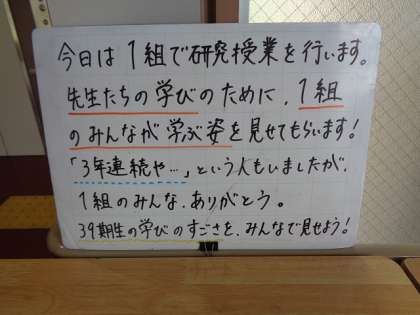 今日は1組で研究授業を行います。
先生たちの学びのために、1組
のみんなが学ぶ姿を見せてもらいます！
「3年連続や…」という人もいましたが、
1組のみんな、ありがとう。
39期生の学びのすごさを、みんなで見せよう！